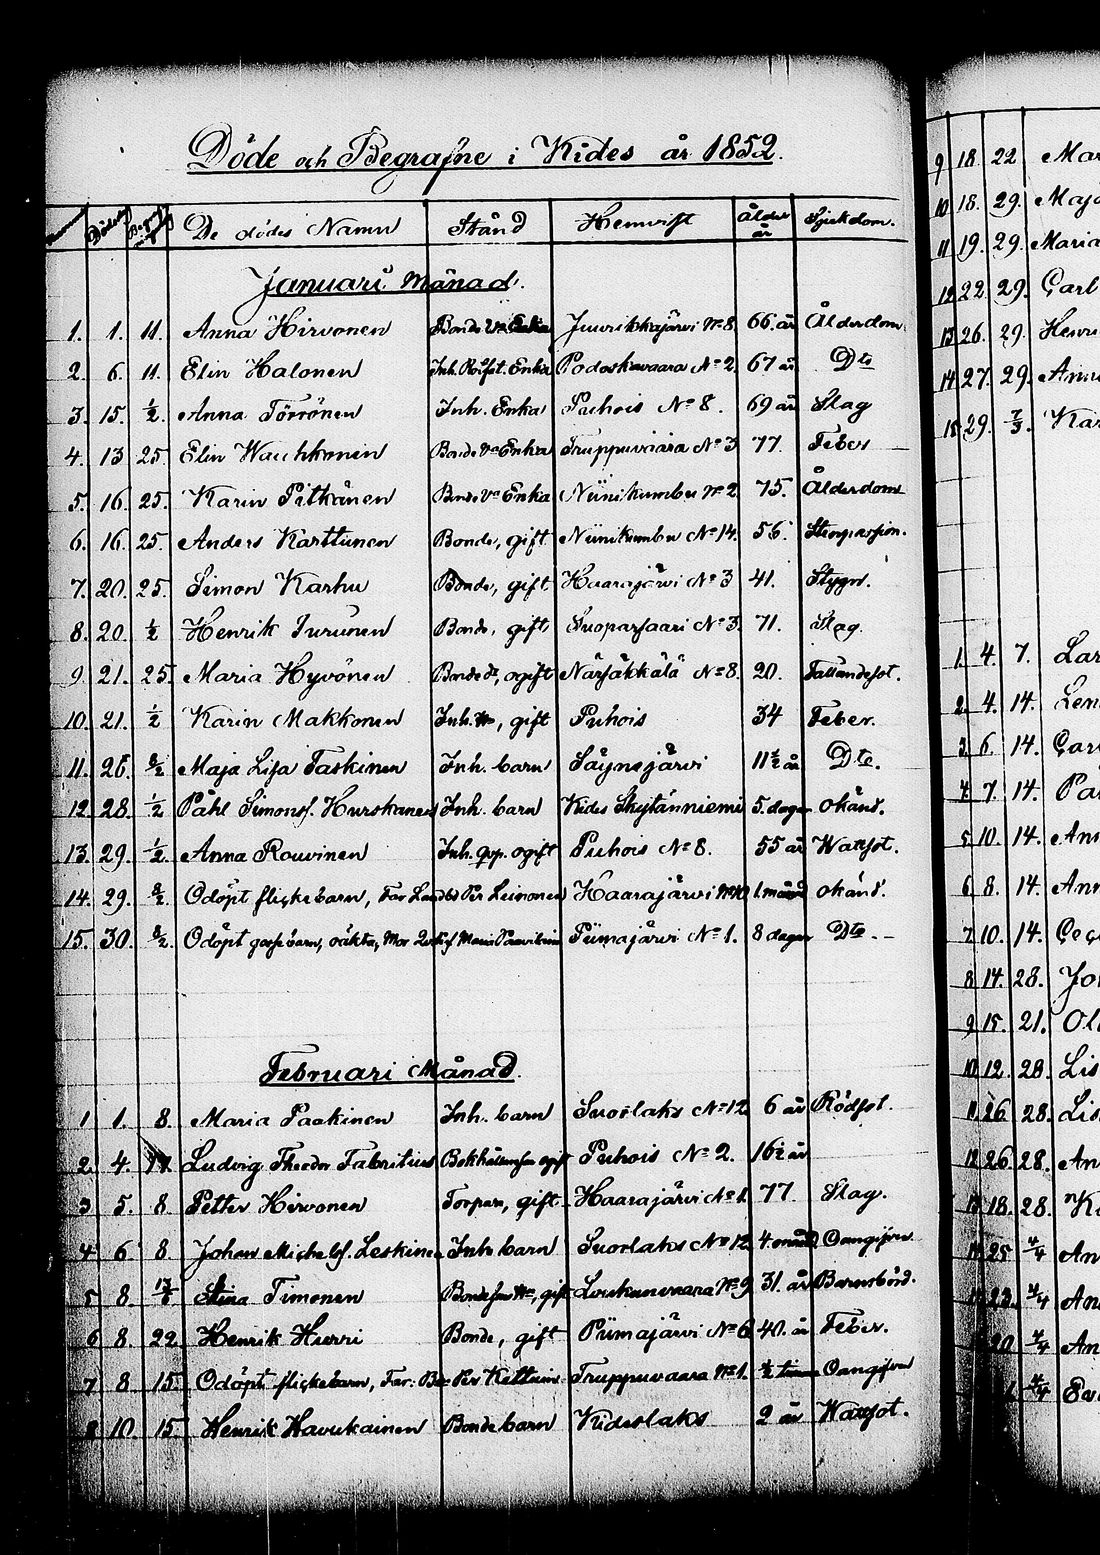 Döde och Begrafne i Kides år 1852.
Döde dag Begrafn. dag De dödes Namn Stånd Hemvist Ålder år Sjukdom.
Januari Månad.
1. 1. 11. Anna Hirvonen Bonde Enka Juurikkajärvi No 8. 66 år Ålderdom
2. 6. 11. Elin Halonen Inh. Enka Podoskavaara No 2. 67 år Dto
3. 15. 1/2 Anna Törrönen Inh. Enka Puhois No 8. 69 år Slag
4. 13 25. Elin Wauhkonen Bonde Enka Truppuvaara No 3 77. Feber
5. 16. 25. Karin Pitkänen Bonde Enka Niinikumbu No 2. 75. Ålderdom
6. 16. 25. Anders Karttunen Bonde, gift Niinikumbu No 14. 56.
7. 20. 25. Simon Karhu Bonde, gift Haarajärvi No 3 41. Stygn.
8. 20. 1/2 Henrik Turunen Bonde, gift Suoparsaari No 3. 71. Slag.
9. 21. 25. Maria Hyvönen Bonde dr, ogift Närsäkkälä No 8. 20. Fallandesot.
10. 21. 1/2 Karin Makkonen Inh. Hu, gift Puhois 34 Feber.
11. 26. 8/2 Maja Lisa Taskinen Inh. barn Säynejärvi 11 1/2 år Dto.
12. 28. 1/2 Påhl Simonsf. Hurskanen Inh. barn Kides Skytänniemi 5. dagar okänd.
13. 29. 1/2 Anna Rouvinen Inh. qvp. ogift Puhois No 8. 55 år Wattsot.
14. 29. 8/2. Odöpt flickebarn, Far Landbo Per Leinonen Haarajärvi No 10 1 månad okänd.
15. 30. 8/2. Odöpt gossebarn, oäkta, Mor Maria Piimäjärvi No 1. 8 dagar Dto.
Februari Månad.
1 1. 8. Maria Paakinen Inh. barn Suorlaks No 12 6 år Rödsot.
2. 4. Ludvig Theodor Fabritius Bokhållare ogift Puhois No 2. 16 1/2 år
3 5. 8. Petter Hirvonen Torpare, gift Haarajärvi No 1. 77. Slag.
4 6 8. Johan Michelsf. Leskinen Inh. barn Suorlaks No 12 4 månad Oangifven
5 8. Stina Timonen Bonde Hu, gift Loukunvaara No 9 31. år Barnsbörd.
6 8. 22. Henrik Hurri Bonde, gift Piimäjärvi No 6 40. år Feber.
7 8 15. Odöpt flickebarn, Far: Bde Per Kettunen Truppuvaara No 1. 1/2 timme Oangifven
8 10. 15. Henrik Havukainen Bonde barn Kideslaks 2 år Wattsot.
9 18. 22. Mar
10 18. 29. Maja
11 19. 29. Maria
12 22. 29. Carl
13 26. 29. Henri
14. 27. 29. Anna
15. 29. 7/3. Kar
1. 4. 7. Lar
2. 4. 14. Len
3. 6. 14. Car
4. 7. 14. Pa
5. 10. 14. Ann
6. 8. 14. Ann
7 10. 14. Ceci
8 14. 28. Joh
9. 15. 21. Ol
10. 12. 28. Lis
11. 26 28. Lis
12. 26. 28. An
13 18. 28. K
14 25 4/4 An
23. 4/4 An
20 4/4 An
4/4 Eva